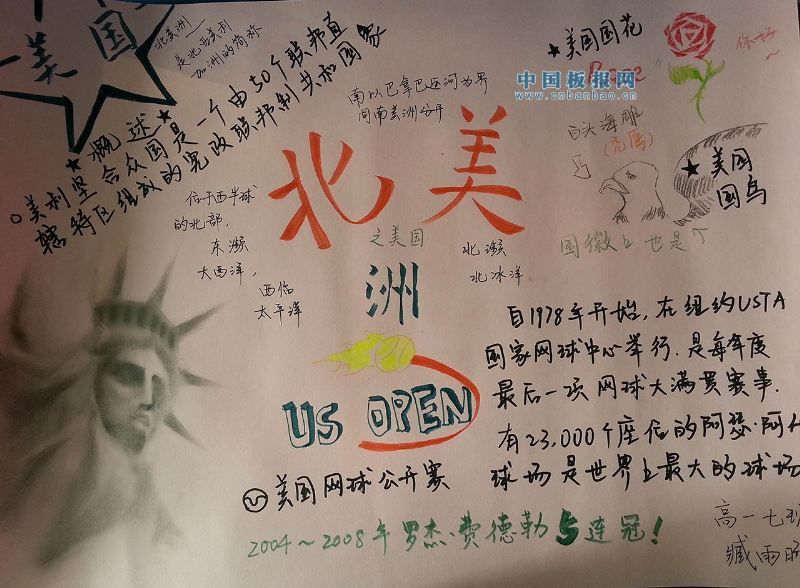 美国
北美洲
是北亚美利
加洲的简称
★概述★
○美利坚合众国是一个由50个联邦直
辖特区组成的宪政联邦制共和国家
南以巴拿巴运河为界
同南美洲分开
★美国国花
Rose
你好~
中国板报网
www.cnbanbao.cn
白头海雕
(秃鹰)
★美国
国鸟
国徽上也是
北美
洲
之美国
位于西半球
的北部,
东濒
大西洋,
西临
太平洋
北濒
北冰洋
自1978年开始,在纽约USTA
国家网球中心举行.是每年度
最后一项网球大满贯赛事.
有23,000个座位的阿瑟·阿什
球场是世界上最大的球场
US OPEN
美国网球公开赛
2004~2008年罗杰·费德勒5连冠!
高一七班
臧雨